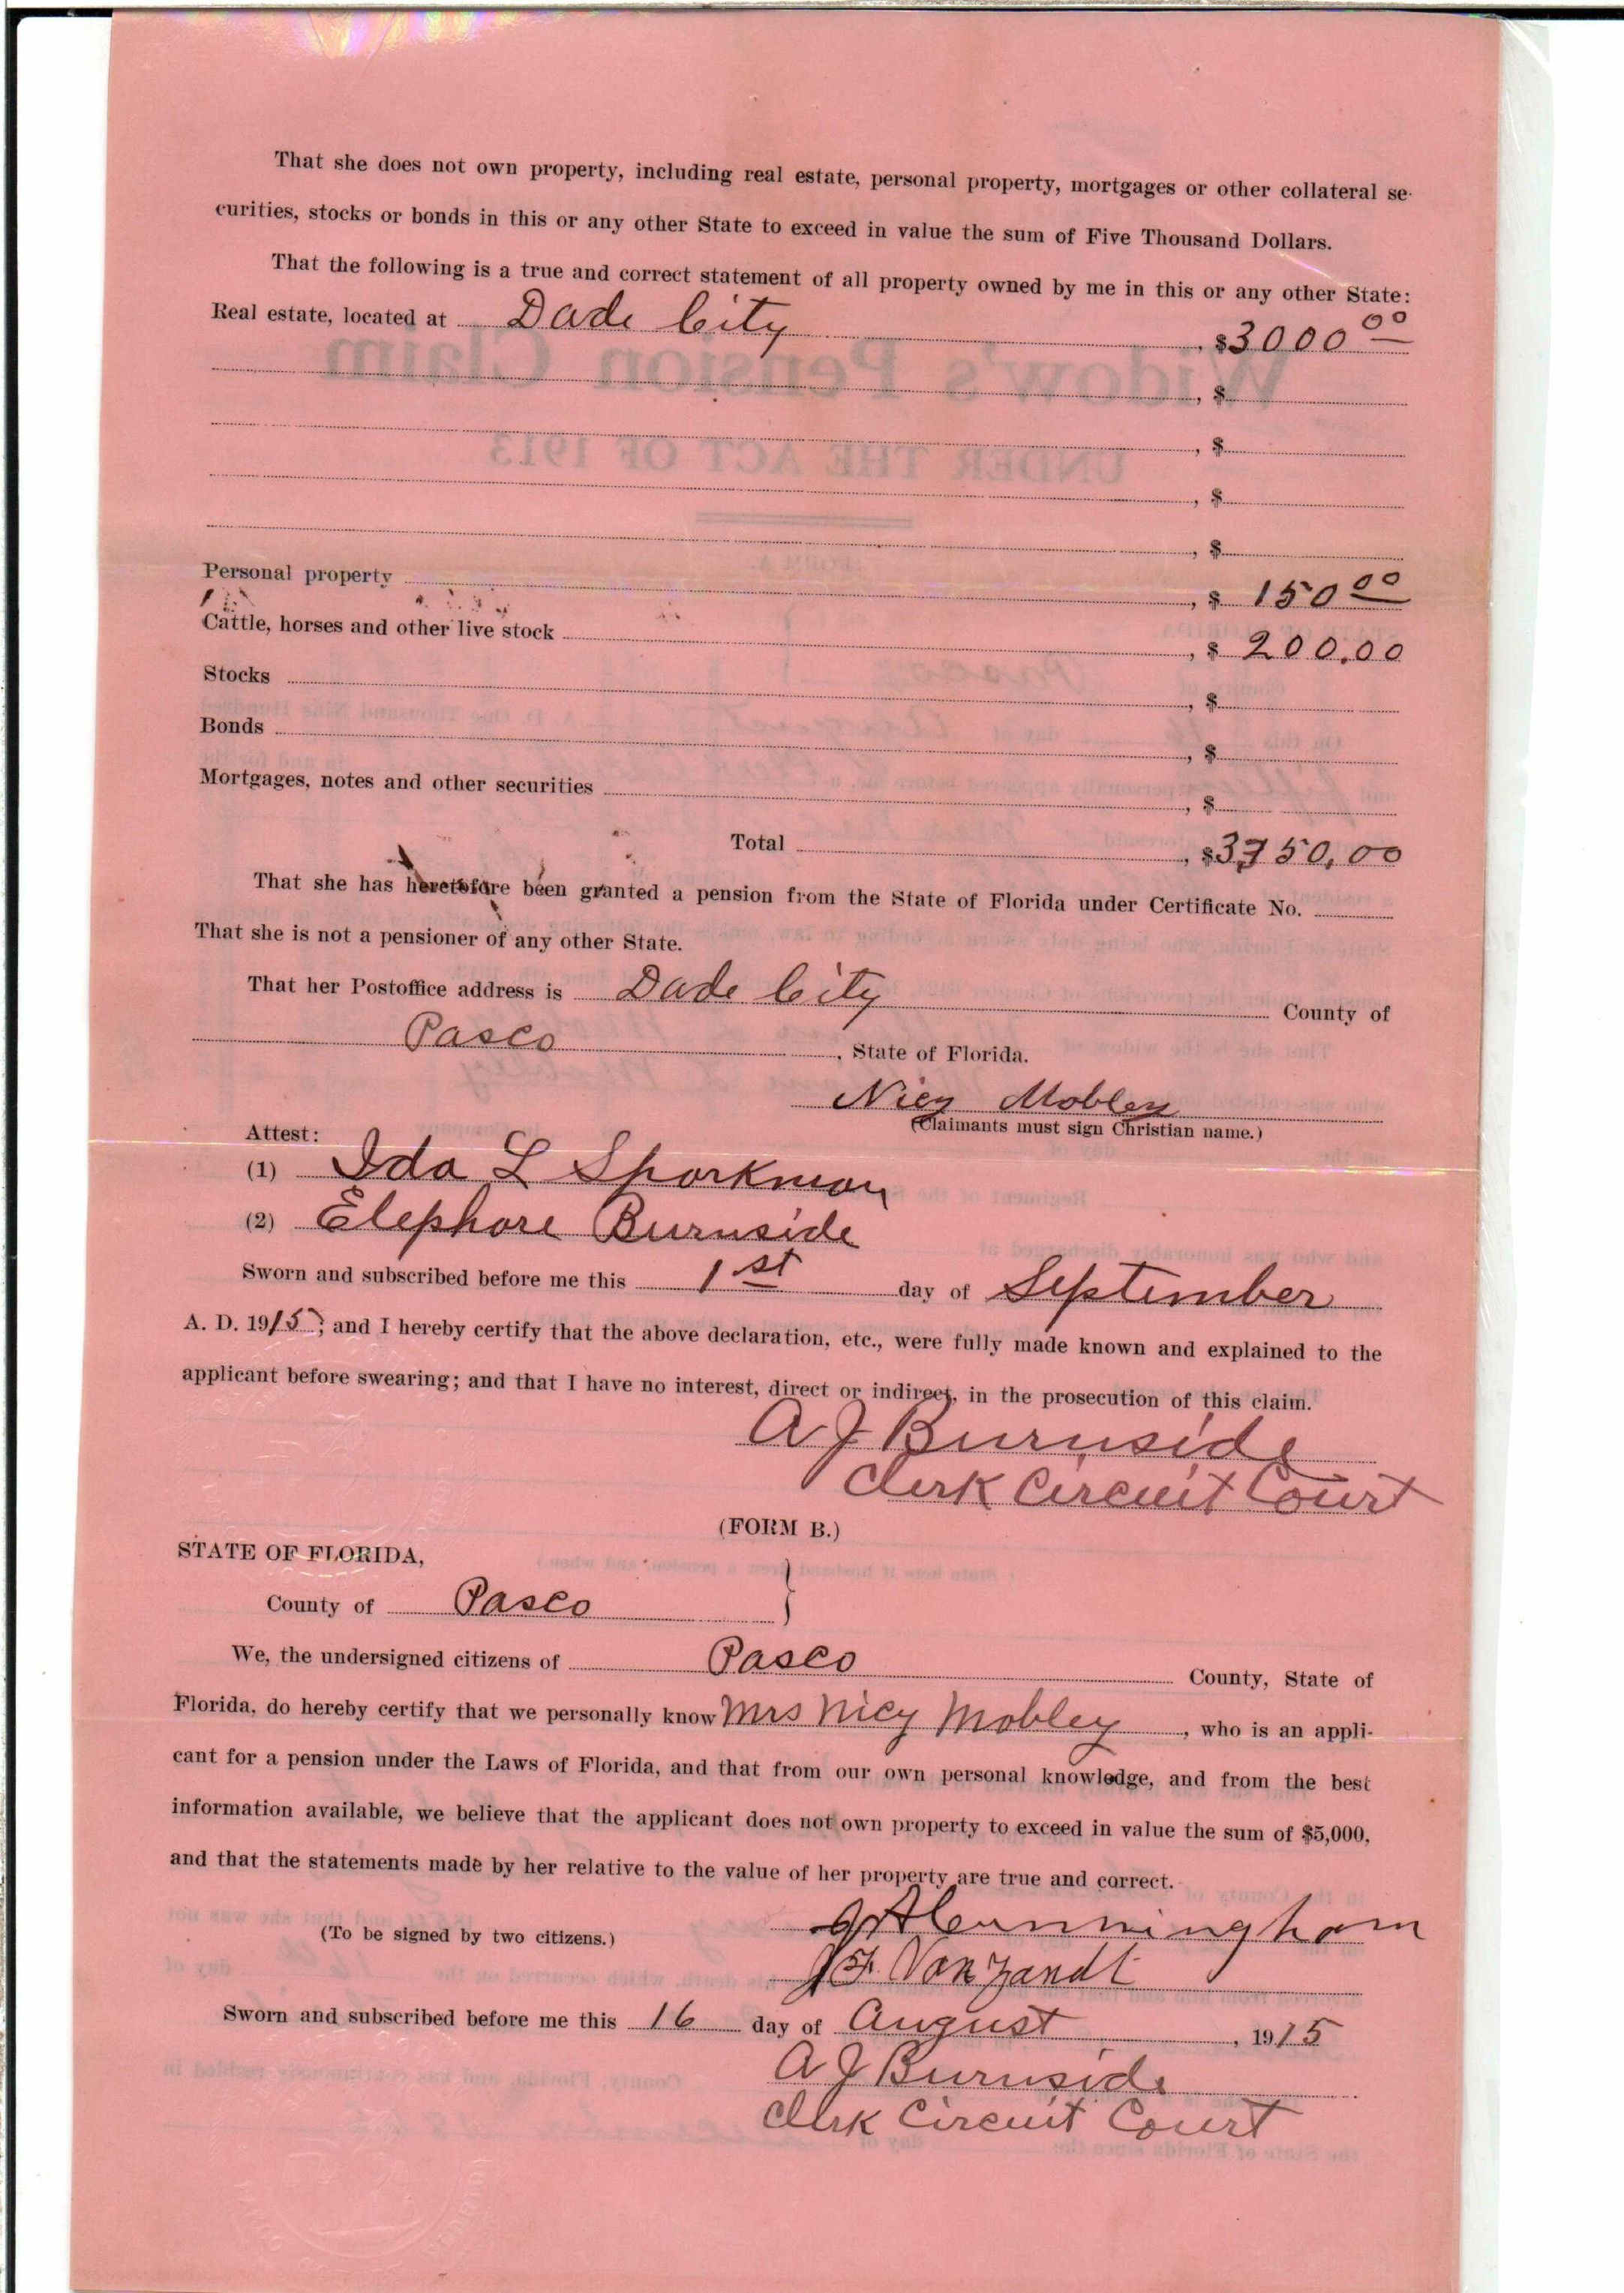 That she does not own property, including real estate, personal property, mortgages or other collateral se-
curities, stocks or bonds in this or any other State to exceed in value the sum of Five Thousand Dollars.
That the following is a true and correct statement of all property owned by me in this or any other State:
Real estate, located at Dade City, $3000 00
, $
, $
, $
, $
Personal property, $ 150 00
Cattle, horses and other live stock, $ 200.00
Stocks, $
Bonds, $
Mortgages, notes and other securities, $
Total, $3750,00
That she has heretofore been granted a pension from the State of Florida under Certificate No.
That she is not a pensioner of any other State.
That her Postoffice address is Dade City County of
Pasco, State of Florida.
Nicy Mobley
(Claimants must sign Christian name.)
Attest:
(1) Ida L Sparkman
(2) Elephare Burnside
Sworn and subscribed before me this 1st day of September
A. D. 1915; and I hereby certify that the above declaration, etc., were fully made known and explained to the
applicant before swearing; and that I have no interest, direct or indirect, in the prosecution of this claim.
A J Burnside
Clerk Circuit Court
(FORM B.)
STATE OF FLORIDA,
County of Pasco }
We, the undersigned citizens of Pasco County, State of
Florida, do hereby certify that we personally know Mrs Nicy Mobley, who is an appli-
cant for a pension under the Laws of Florida, and that from our own personal knowledge, and from the best
information available, we believe that the applicant does not own property to exceed in value the sum of $5,000,
and that the statements made by her relative to the value of her property are true and correct.
J A Cunningham
(To be signed by two citizens.)
J F. Van Zandt
Sworn and subscribed before me this 16 day of August, 1915
A J Burnside
Clerk Circuit Court